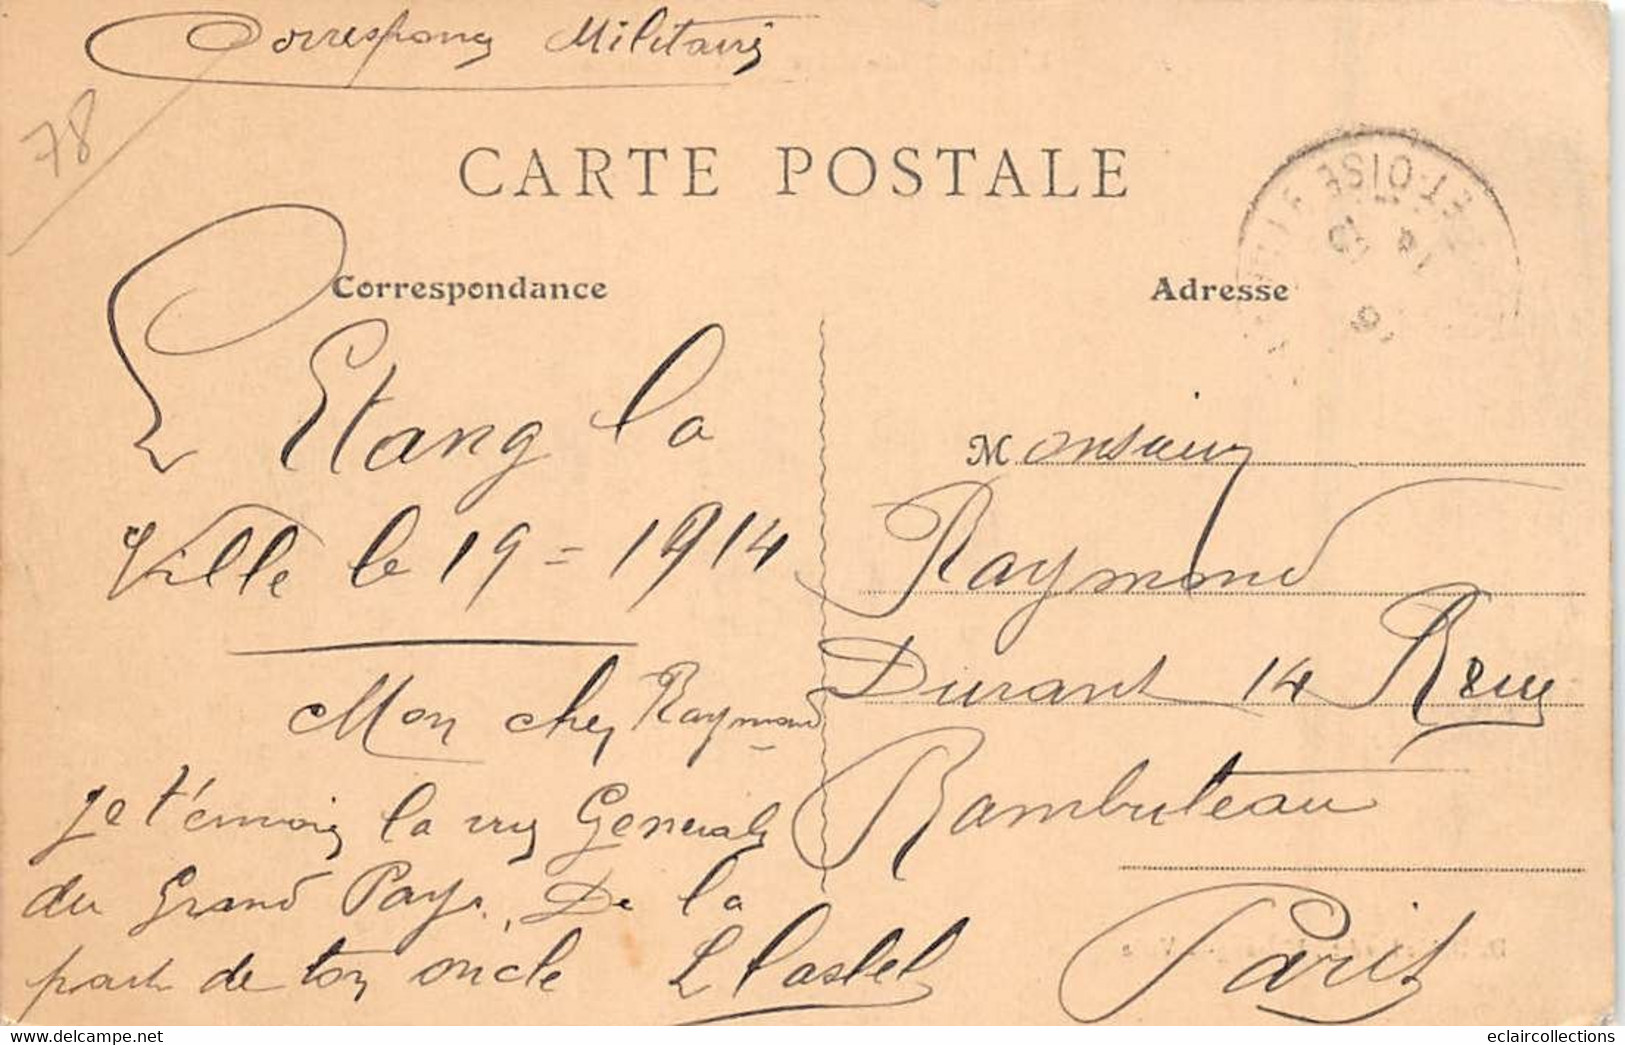 Correspond Militaire
78
CARTE POSTALE
ET-OISE
Correspondance
Adresse
L'Etang la
Ville le 19 = 1914
Mon cher Raymond
je t'envoi la vue Generale
du Grand Pays. De la
part de ton oncle L Castel
Monsieur
Raymond
Durant 14 Rue
Rambuteau
Paris
eclaircollections